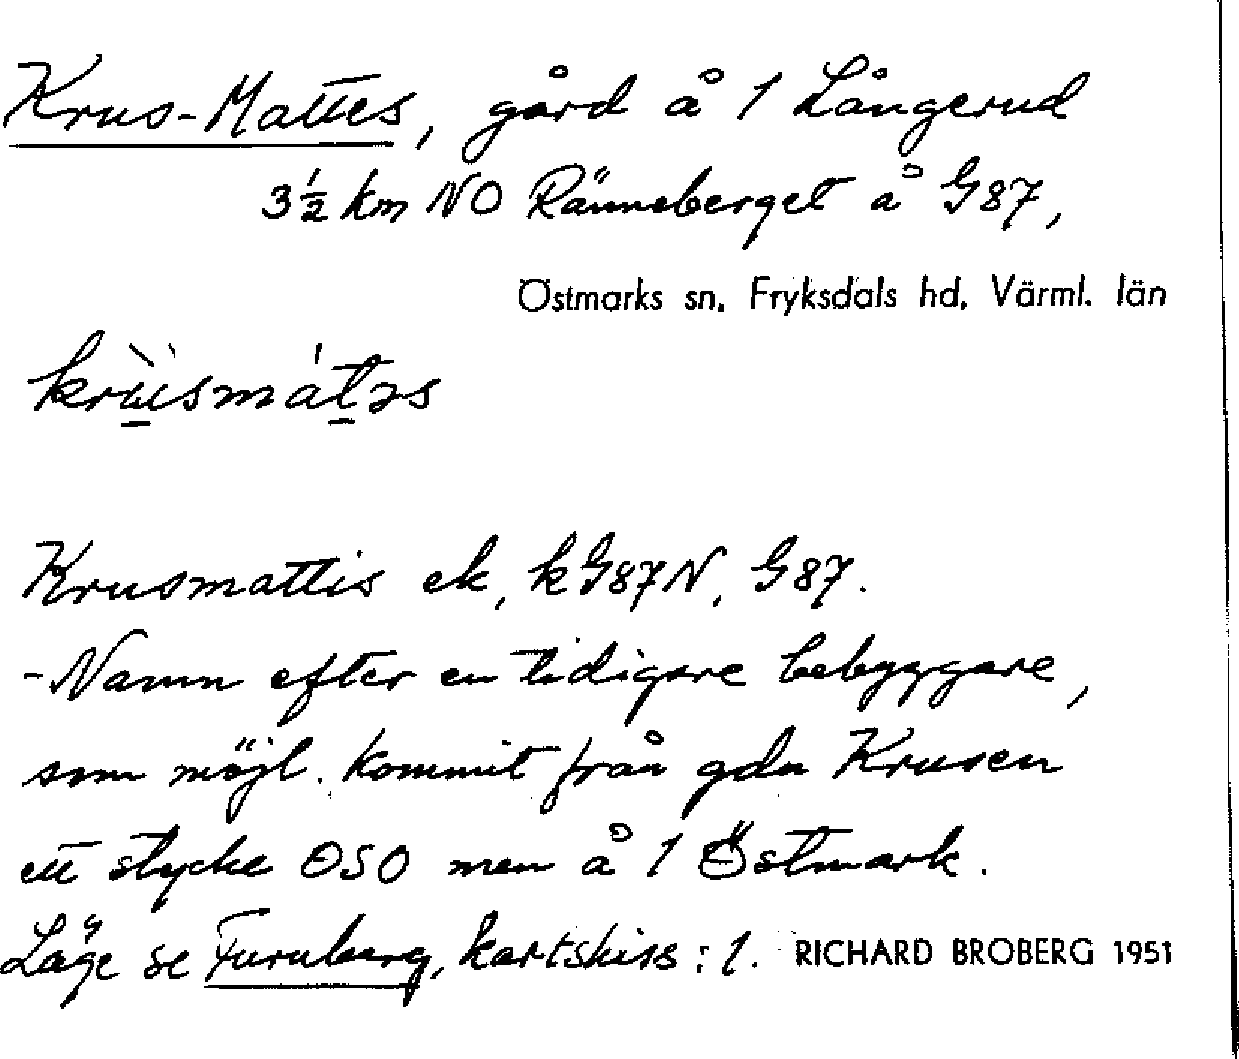 Krus-Mattes, gård å 1 Långerud
3½ km NO Ränneberget å G87,
Östmarks sn, Fryksdals hd, Värml. län
krùsmátəs
Krusmattis ek, kG87N, G87.
-Namn efter en tidigare bebyggare,
som möjl. kommit från gdn Krusen
ett stycke OSO men å 1 Östmark.
Läge se Furuberg, kartskiss: 1. RICHARD BROBERG 1951